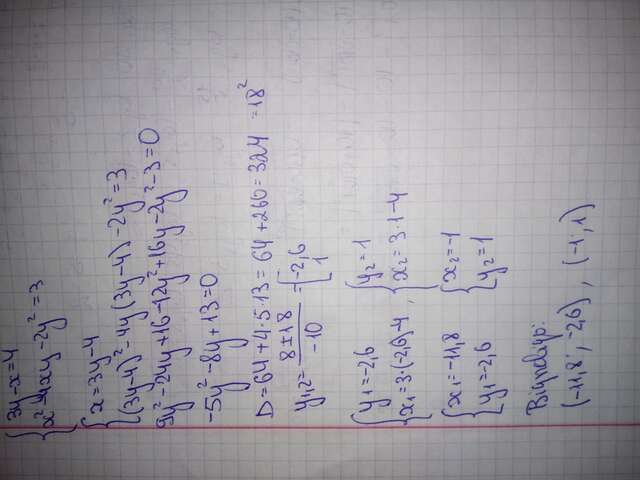 { 3y-x=4
{ x²-4xy-2y²=3
{ x=3y-4
{ (3y-4)²-4y(3y-4)-2y²=3
9y²-24y+16-12y²+16y-2y²-3=0
-5y²-8y+13=0
D=64+4·5·13=64+260=324 =18²
y₁,₂= 8±18 / -10 = [ -2,6 1
{ y₁=-2,6 { y₂=1
{ x₁=3·(-2,6)-4 , { x₂=3·1-4
{ x₁=-11,8 { x₂=-1
{ y₁=-2,6 { y₂=1
Відповідь:
(-11,8; -2,6) , (-1; 1)